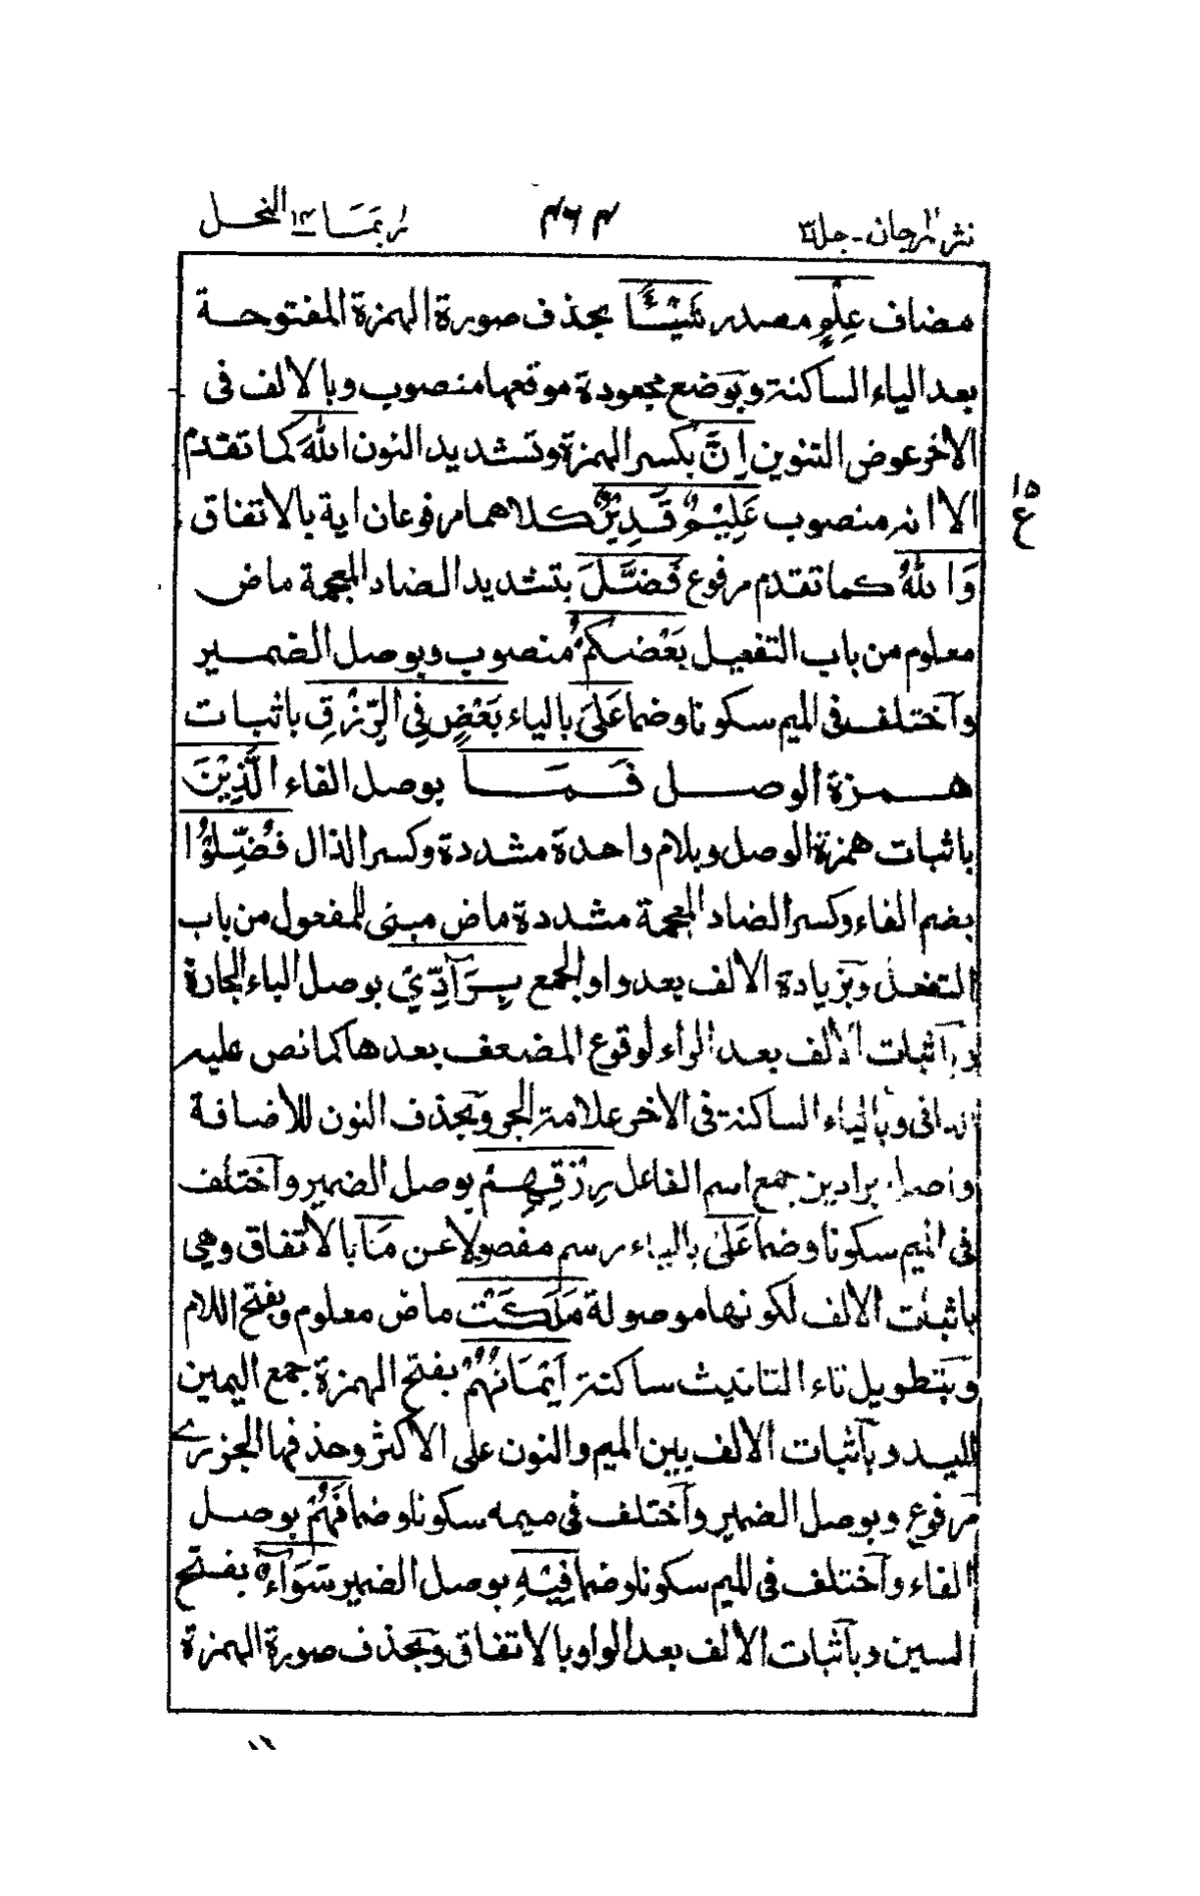 نثر المرجان - جلد ۳ ۴۶۴ ربما ۱۴ النحل
مضاف عِلْمٍ مصدر شَيْئًا بحذف صورة الهمزة المفتوحة
بعد الياء الساكنة وبوضع مجعودة موقعها منصوب وبالالف فى
الاخر عوض التنوين اِنَّ بكسر الهمزة وتشديد النون اللهَ كما تقدم
الا انه منصوب عَلِيْمٌ قَدِيْرٌ كلاهما مرفوعان اية بالاتفاق
۱۵
ع
وَاللهُ كما تقدم مرفوع فَضَّلَ بتشديد الضاد المعجمة ماض
معلوم من باب التفعيل بَعْضَكُمْ منصوب وبوصل الضمير
واختلف فى الميم سكونا وضما عَلىٰ بالياء بَعْضٍ فِى الرِّزْقِ باثبات
همزة الوصل فَمَا بوصل الفاء الَّذِيْنَ
باثبات همزة الوصل وبلام واحدة مشددة وكسر الذال فُضِّلُوْا
بضم الفاء وكسر الضاد المعجمة مشددة ماض مبنى للمفعول من باب
التفعل وبزيادة الالف بعد واو الجمع بِرَآدِّيْ بوصل الباء الجارة
وباثبات الالف بعد الراء لوقوع المضعف بعدها كما نص عليه
الدانى وبالياء الساكنة فى الاخر علامة الجر وبحذف النون للاضافة
واصله برادين جمع اسم الفاعل رِزْقِهِمْ بوصل الضمير واختلف
فى الميم سكونا وضما عَلىٰ بالياء رسم مفصولا عن مَا بالاتفاق وهى
باثبات الالف لكونها موصولة مَلَكَتْ ماض معلوم وبفتح اللام
وبتطويل تاء التانيث ساكنة اَيْمَانُهُمْ بفتح الهمزة جمع اليمين
لليد وباثبات الالف بين الميم والنون على الاكثر وحذفها الجزرے
مرفوع وبوصل الضمير واختلف فى ميمه سكونا وضما فَهُمْ بوصل
الفاء واختلف فى الميم سكونا وضما فِيْهِ بوصل الضمير سَوَآءٌ بفتح
السين وباثبات الالف بعد الواو بالاتفاق وبحذف صورة الهمزة